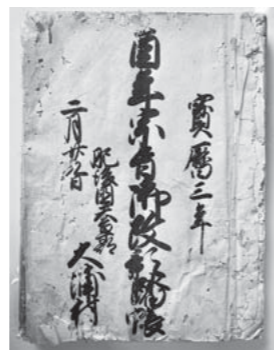 寳暦三年
酉年宗旨御改影踏帳
肥後国天草郡
大浦村
二月廿日